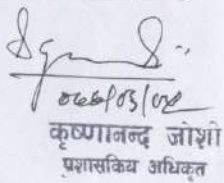 ०६६/०३/०४
कृष्णानन्द जोशी
प्रशासकिय अधिकृत